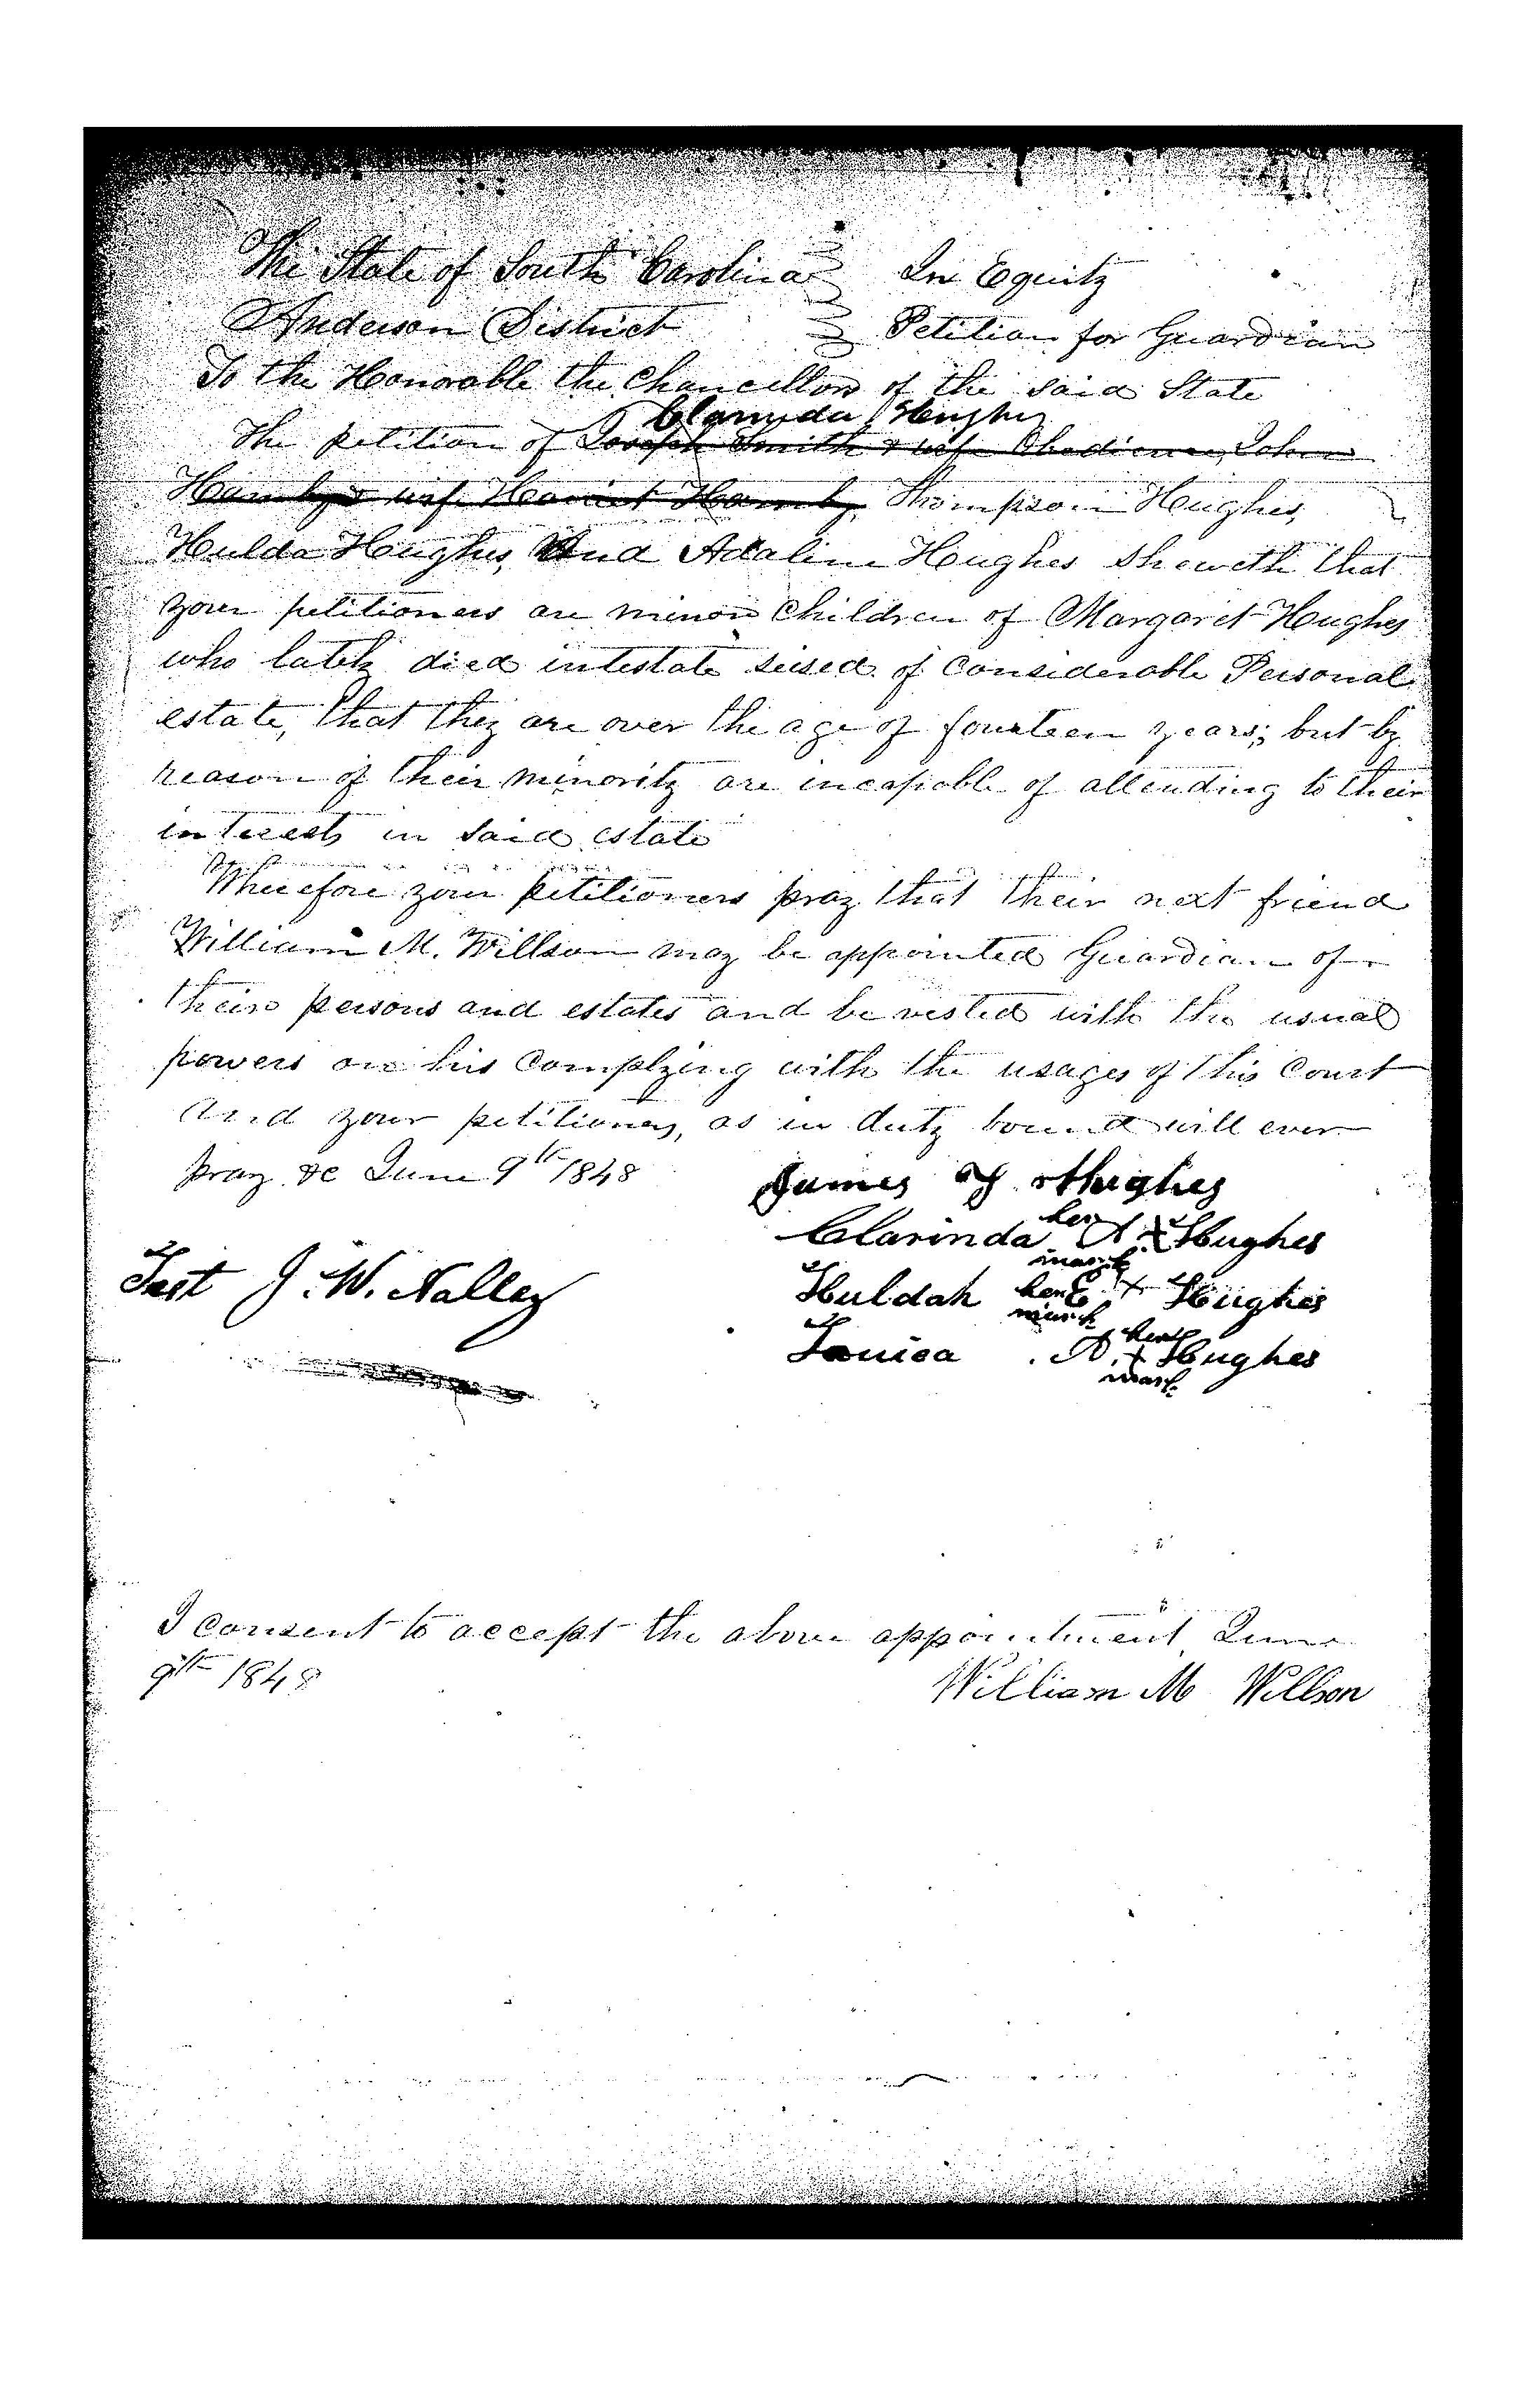 The State of South Carolina In Equity
Anderson District Petition for Guardian
To the Honorable the Chancellors of the said State
Clarinda Hughes
The petition of Joseph Smith & wife Obedience, John
Hamby & wife Harriet Hamby, Thompson Hughes,
Hulda Hughes, And Adaline Hughes sheweth that
your petitioners are minor children of Margaret Hughes
who lately died intestate seised of considerable Personal
estate, that they are over the age of fourteen years; but by
reason of their minority are incapable of attending to their
interests in said estate
Wherefore your petitioners pray that their next friend
William M. Willson may be appointed Guardian of
their persons and estates and be vested with the usual
powers on his complying with the usages of this Court
And your petitioners, as in duty bound will ever
pray &c June 9th 1848
James Hughes
Clarinda A. her + mark Hughes
Test J. W. Nalley
Huldah E. her + mark Hughes
A. her + mark Hughes
I consent to accept the above appointment June
9th 1848
William M Willson